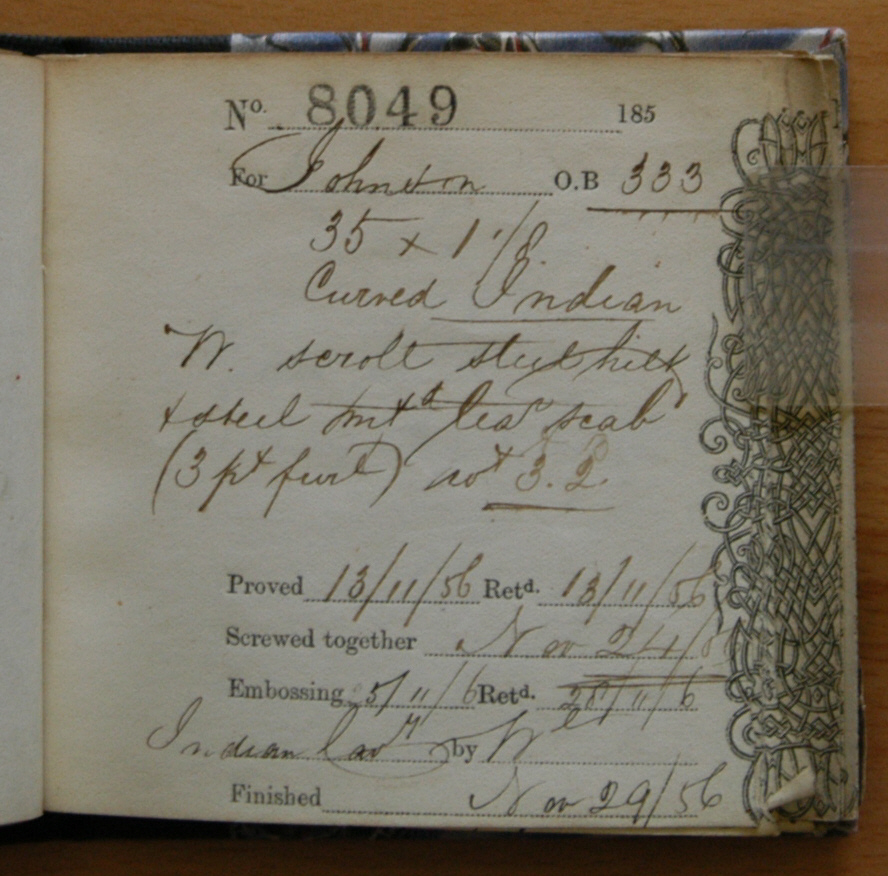 No. 8049 185
For Johnston O.B 333
35 x 1 1/8
Curved Indian
W. scroll steel hilt
& steel mtd lear scab
(3 pt furl) wt 3.2
Proved 13/11/56 Retd. 13/11/56
Screwed together Nov 24/5
Embossing 5/11/6 Retd. 28/11/6
Indian Cavy by W
Finished Nov 29/56